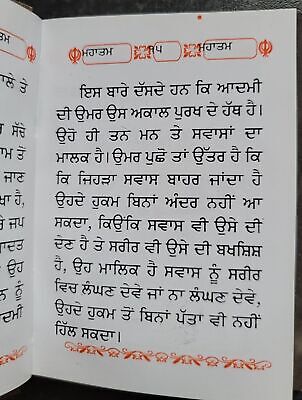 ਮਹਾਤਮ ੧੫ ਮਹਾਤਮ
ਇਸ ਬਾਰੇ ਦੱਸਦੇ ਹਨ ਕਿ ਆਦਮੀ
ਦੀ ਉਮਰ ਉਸ ਅਕਾਲ ਪੁਰਖ ਦੇ ਹੱਥ ਹੈ।
ਉਹੋ ਹੀ ਤਨ ਮਨ ਤੇ ਸਵਾਸਾਂ ਦਾ
ਮਾਲਕ ਹੈ। ਉਮਰ ਪੁਛੋ ਤਾਂ ਉੱਤਰ ਹੈ ਕਿ
ਕਿ ਜਿਹੜਾ ਸਵਾਸ ਬਾਹਰ ਜਾਂਦਾ ਹੈ
ਉਹਦੇ ਹੁਕਮ ਬਿਨਾਂ ਅੰਦਰ ਨਹੀਂ ਆ
ਸਕਦਾ, ਕਿਉਂਕਿ ਸਵਾਸ ਵੀ ਉਸੇ ਦੀ
ਦੇਣ ਹੈ ਤੇ ਸਰੀਰ ਵੀ ਉਸੇ ਦੀ ਬਖਸ਼ਿਸ਼
ਹੈ, ਉਹ ਮਾਲਿਕ ਹੈ ਸਵਾਸ ਨੂੰ ਸਰੀਰ
ਵਿਚ ਲੰਘਣ ਦੇਵੇ ਜਾਂ ਨਾ ਲੰਘਣ ਦੇਵੇ,
ਉਹਦੇ ਹੁਕਮ ਤੋਂ ਬਿਨਾਂ ਪੱਤਾ ਵੀ ਨਹੀਂ
ਹਿੱਲ ਸਕਦਾ।